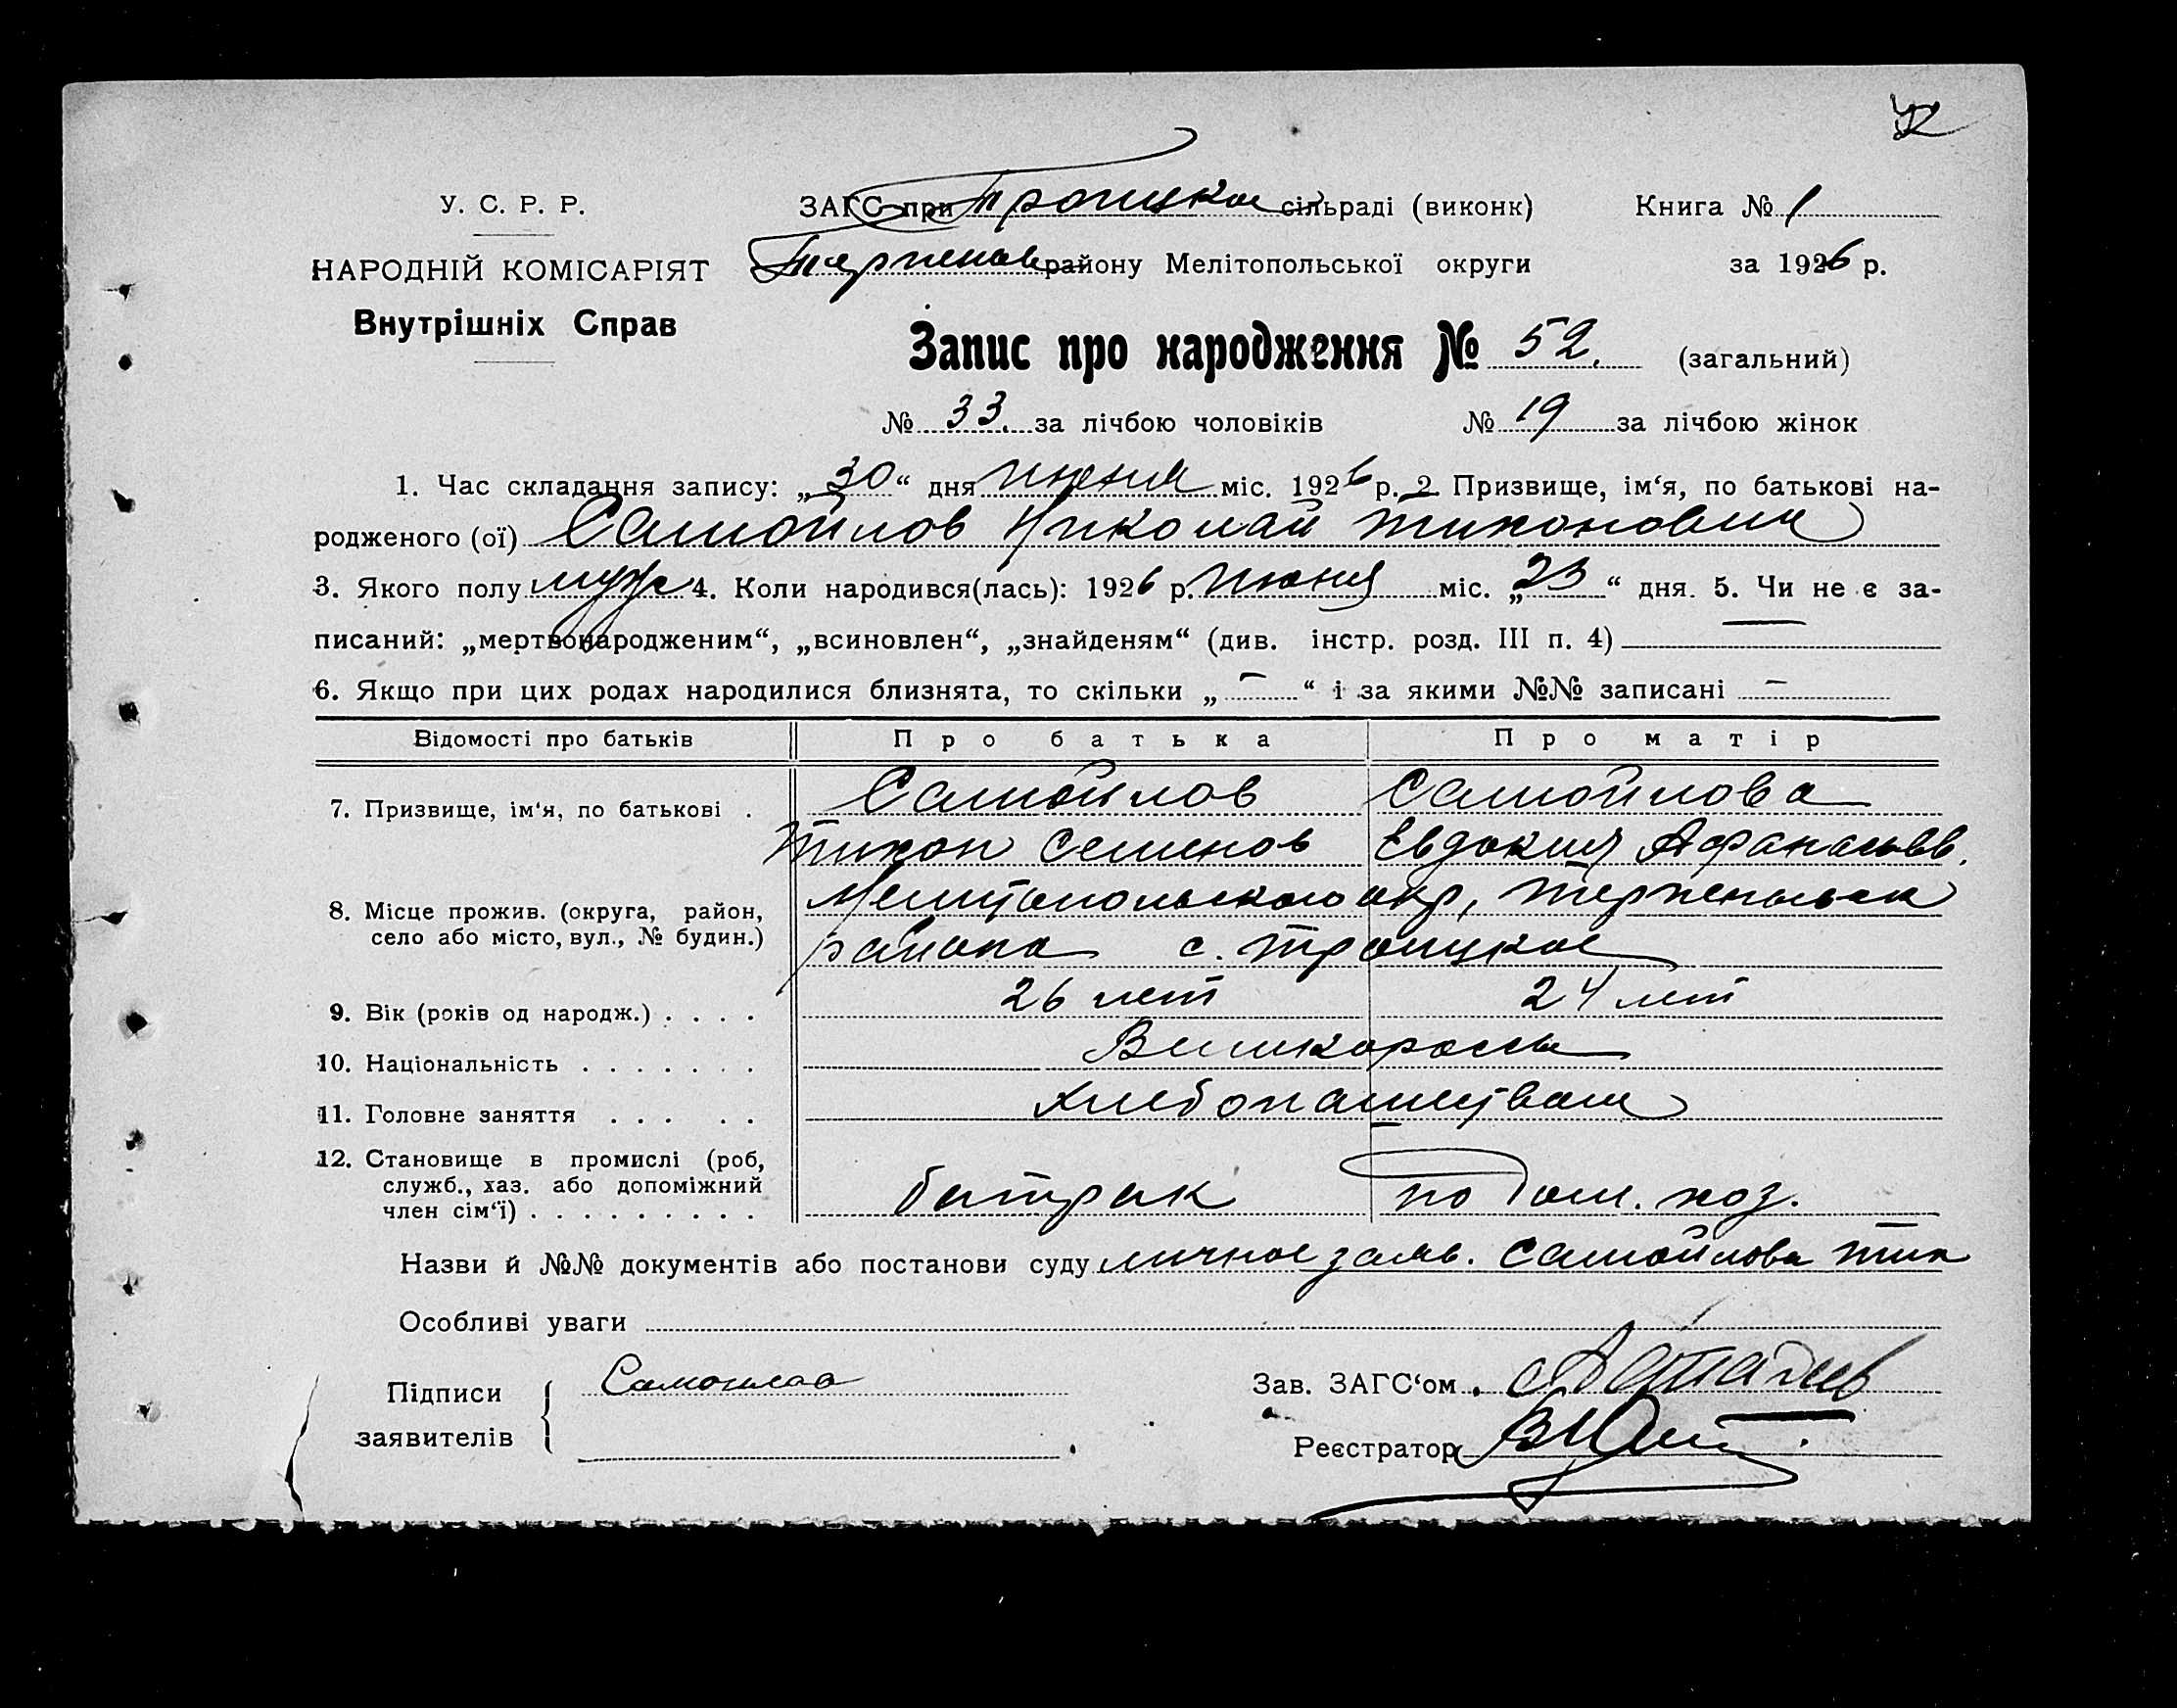 У. С. Р. Р.
ЗАГС при Троицком сільраді (виконк)
Книга № 1
НАРОДНІЙ КОМІСАРІЯТ
Терпенов району Мелітопольської округи
за 1926 р.
Внутрішніх Справ
Запис про народження № 52. (загальний)
№ 33. за лічбою чоловіків № 19 за лічбою жінок
1. Час складання запису: „30“ дня июня міс. 1926 р. 2. Призвище, ім‘я, по батькові на-
родженого (ої) Самойлов Николай Тихонович
3. Якого полу муж 4. Коли народився(лась): 1926 р. июня міс. „23“ дня. 5. Чи не є за-
писаний: „мертвонародженим“, „всиновлен“, „знайденям“ (див. інстр. розд. III п. 4) —
6. Якщо при цих родах народилися близнята, то скільки „—“ і за якими №№ записані —
Відомості про батьків Про батька Про матір
7. Призвище, ім‘я, по батькові . Самойлов Самойлова
Тихон Семенов Евдокия Афанасьев.
8. Місце прожив. (округа, район, село або місто, вул., № будин.) Мелитопольского окр, Терпеньевск
района с. Троицкое
9. Вік (років од народж.) . . . . 26 лет 24 лет
10. Національність . . . . . . . Великороссы
11. Головне заняття . . . . . Хлебопашеством
12. Становище в промислі (роб,
служб., хаз. або допоміжний
член сім‘ї) . . . . . . . . . батрак по дом. хоз.
Назви й №№ документів або постанови суду личное заяв. Самойлова Тих
Особливі уваги
Підписи
заявителів
Самоилов
Зав. ЗАГС‘ом
Реєстратор